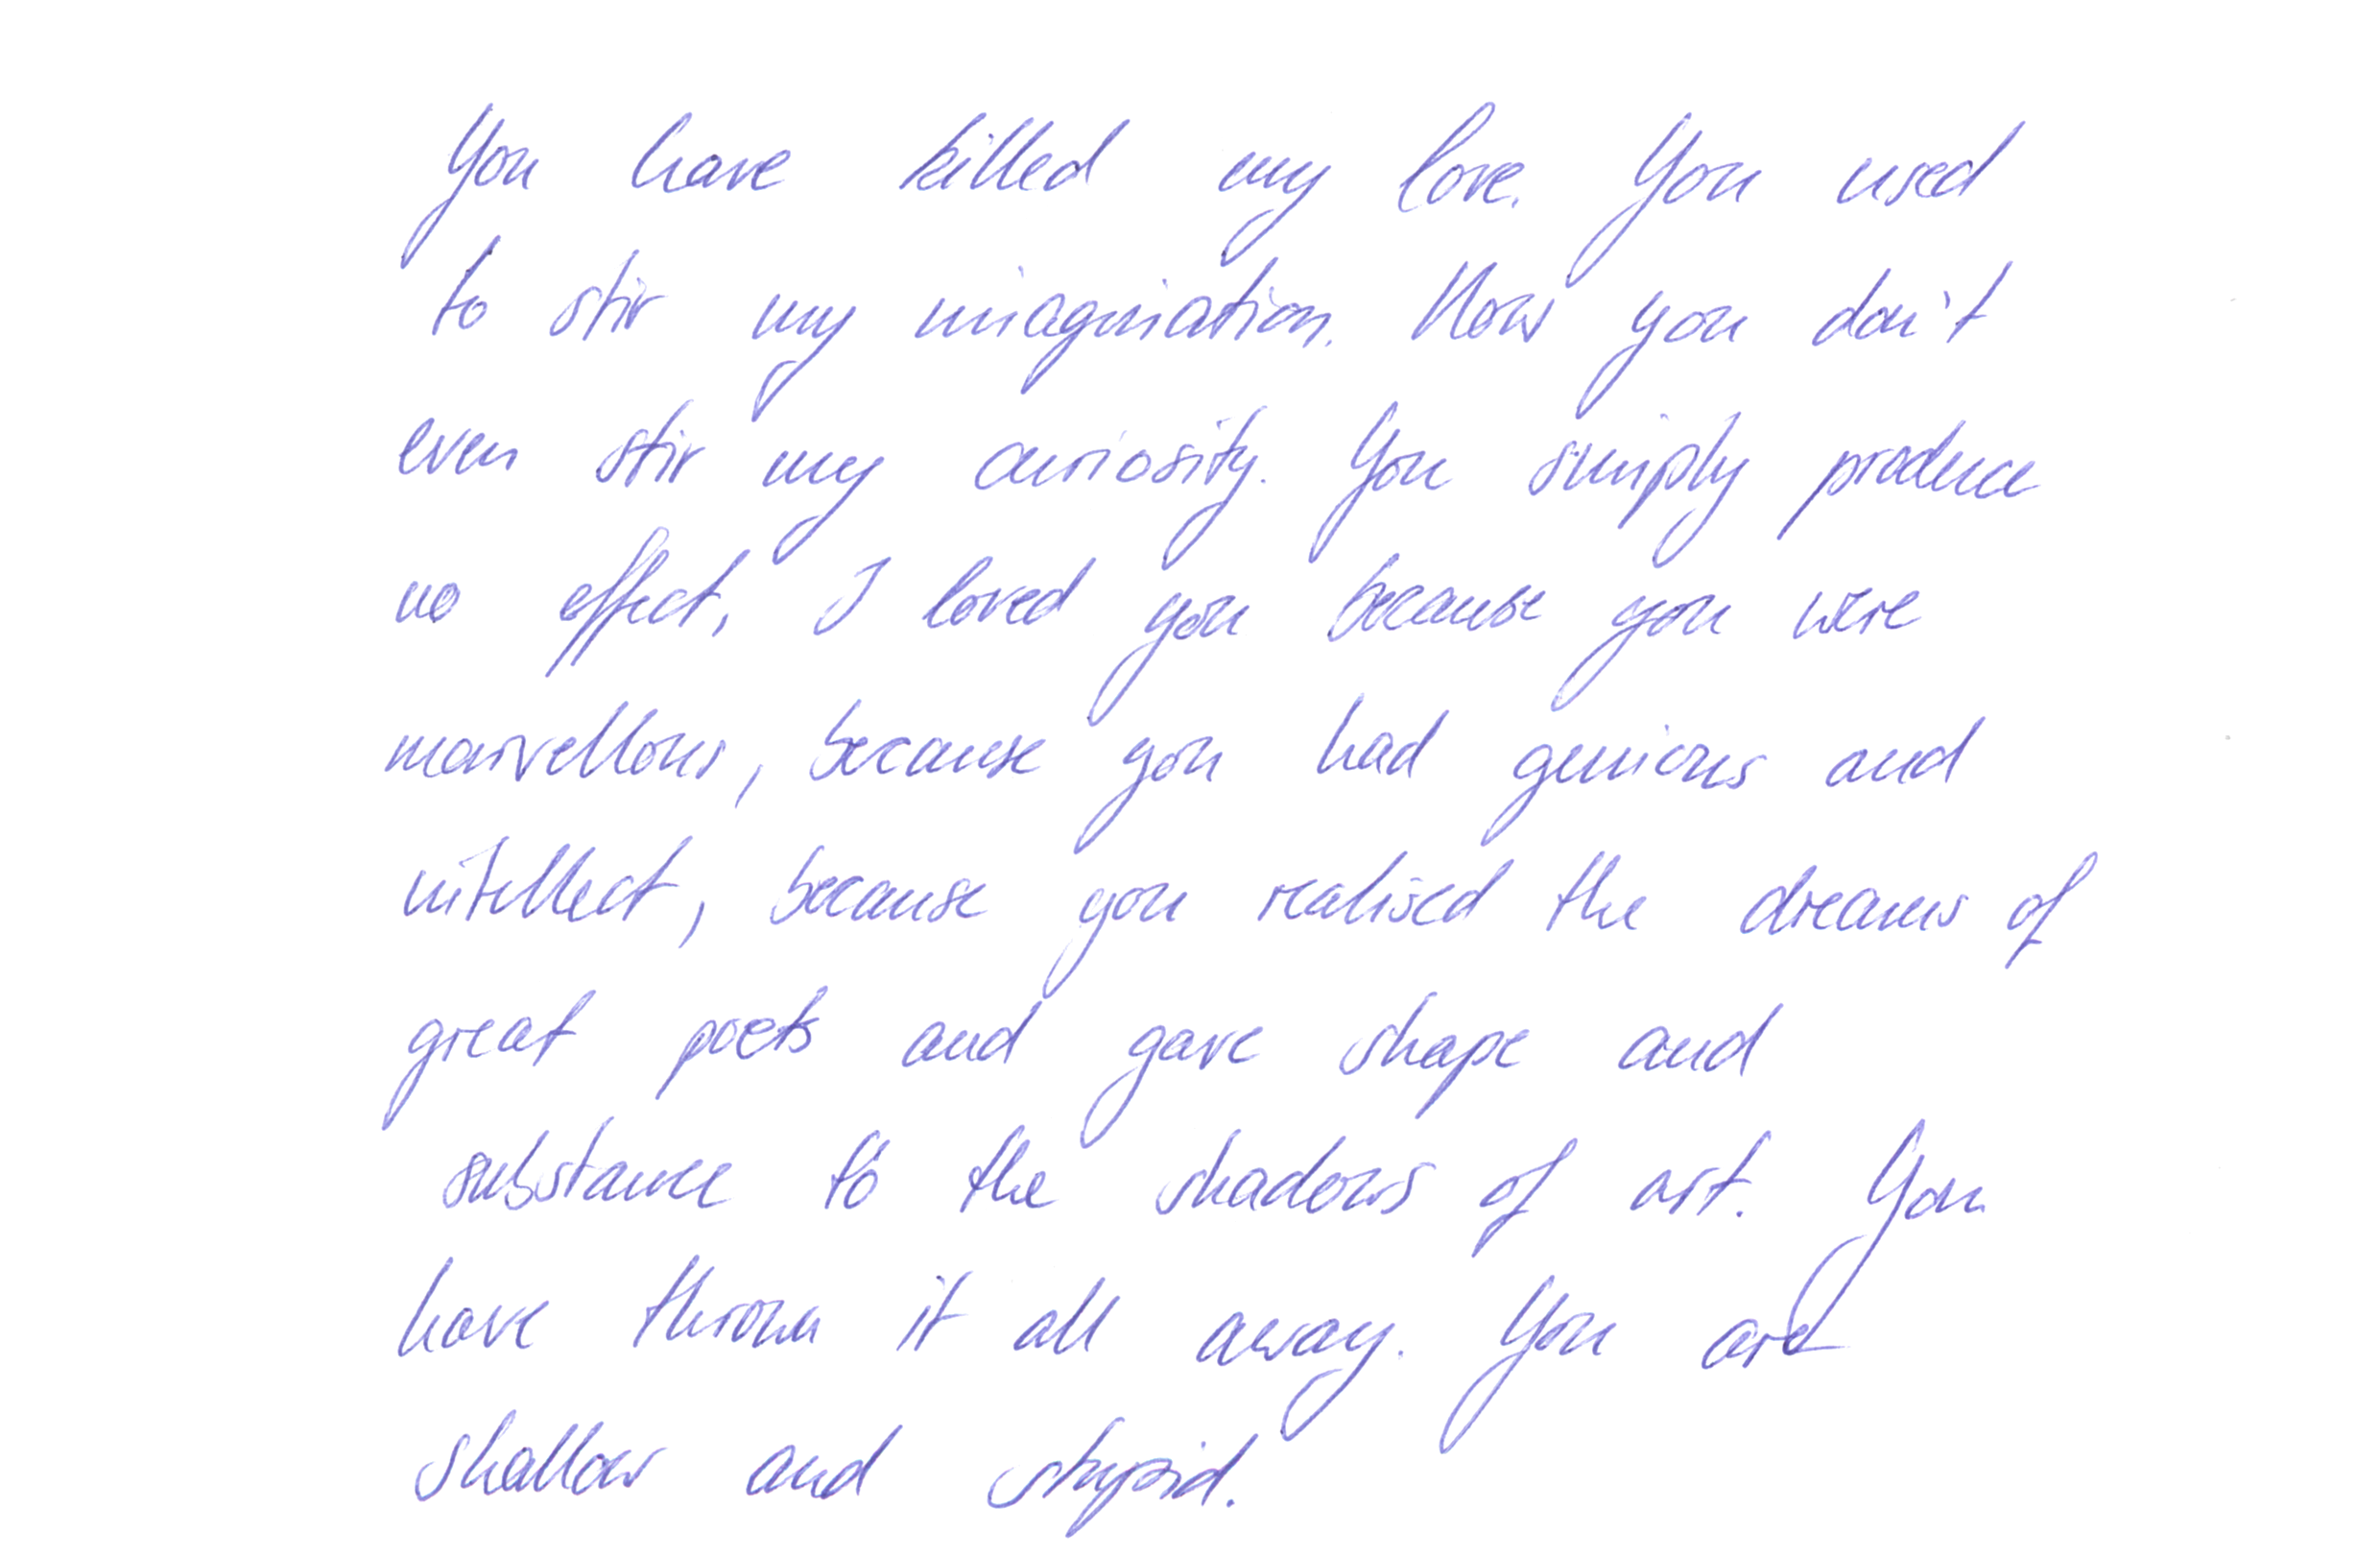 You have killed my love. You used
to stir my imagination. Now you don't
even stir my curiosity. You simply produce
no effect. I loved you because you were
marvellous, because you had genious and
intellect, because you realised the dreams of
great poets and gave shape and
substance to the shadows of art. You
have thrown it all away. You are
shallow and stupid.